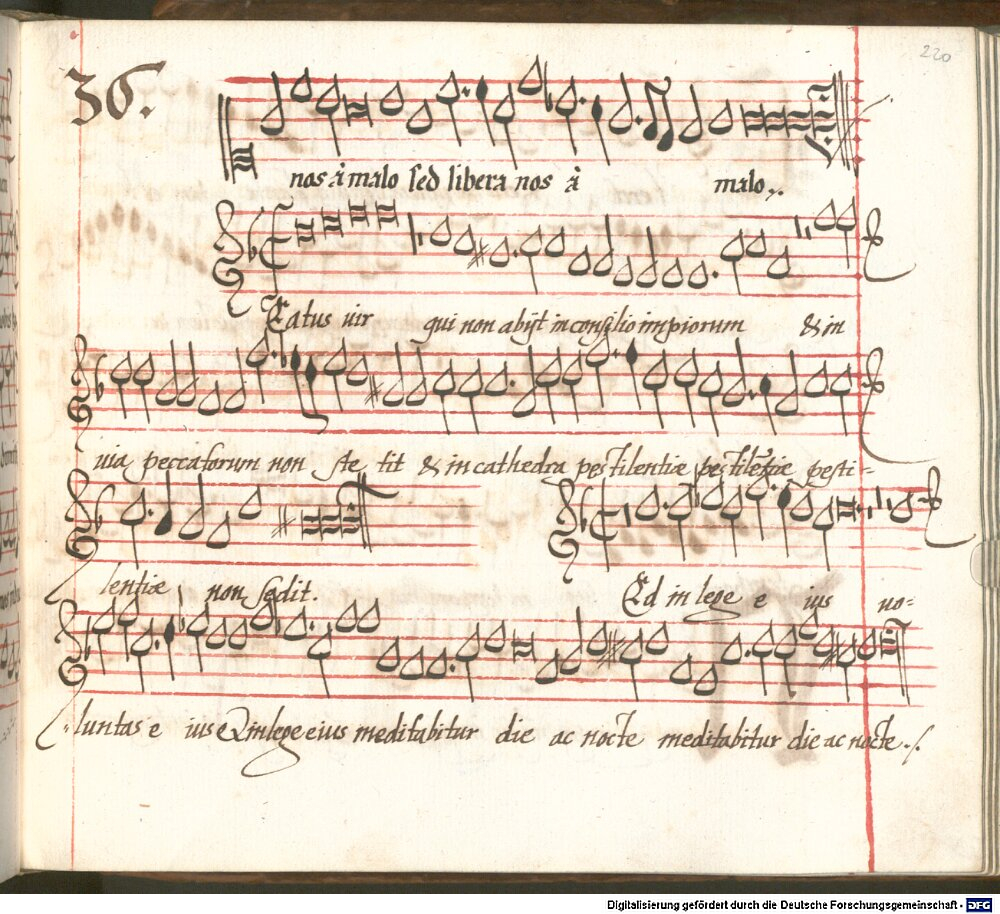 220
36.
nos à malo sed libera nos à malo.
Eatus uir qui non abijt in consilio impiorum & in
uia peccatorum non ste tit & in cathedra pestilentiæ pestilẽtiæ pesti-
lentiæ non sedit. Ed in lege e ius uo-
luntas e ius & in lege eius meditabitur die ac nocte meditabitur die ac nocte ./.
Digitalisierung gefördert durch die Deutsche Forschungsgemeinschaft - DFG